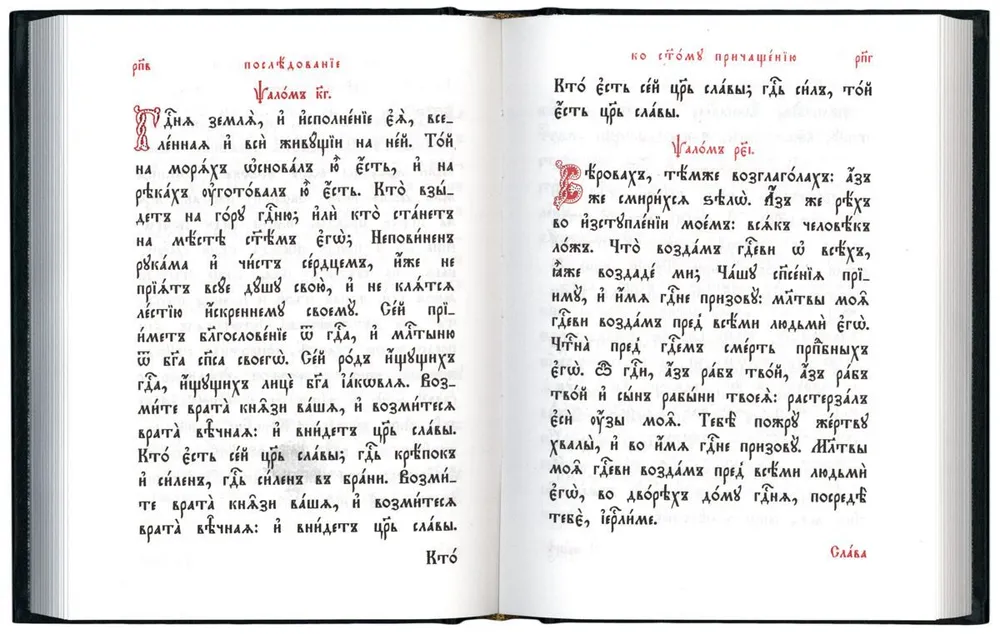 рп҃в послѣ́дованїе
Ѱало́мъ к҃г.
Гдⷭ҇ня землѧ̀, и҆ и҆сполне́нїе є҆ѧ̀, все-
ле́нная и҆ всѝ живу́щїи на не́й. То́й
на морѧ́хъ ѡ҆снова́лъ ю҆̀ є҆́сть, и҆ на
рѣка́хъ ᲂу҆гото́валъ ю҆̀ є҆́сть. Кто̀ взы́-
детъ на го́ру гдⷭ҇ню; и҆лѝ кто̀ ста́нетъ
на мѣ́стѣ ст҃ѣ́мъ є҆гѡ̀; Непови́ненъ
рука́ма и҆ чи́стъ се́рдцемъ, и҆́же не
прїѧ́тъ всу́е ду́шу свою̀, и҆ не клѧ́тся
ле́стїю и҆́скреннему своему̀. Се́й прїи́-
иметъ блгⷭ҇ове́нїе ѿ гдⷭ҇а, и҆ млⷭ҇тыню
ѿ бг҃а сп҃са своегѡ̀. Се́й ро́дъ и҆́щущихъ
гдⷭ҇а, и҆́щущихъ лицѐ бг҃а і҆а́кѡвля. Воз-
ми́те врата̀ кнѧ̑зи ва́шя, и҆ возми́теся
врата̀ вѣ̑чная: и҆ вни́детъ цр҃ь сла́вы.
Кто̀ є҆́сть се́й цр҃ь сла́вы; гдⷭ҇ь крѣ́покъ
и҆ си́ленъ, гдⷭ҇ь си́ленъ в бра́ни. Возми́-
те врата̀ кнѧ̑зи ва́шя, и҆ возми́теся
врата̀ вѣ̑чная: и҆ вни́детъ цр҃ь сла́вы.
Кто̀
ко ст҃о́му причаще́нїю рп҃г
Кто̀ є҆́сть се́й цр҃ь сла́вы; гдⷭ҇ь си́лъ, то́й
є҆́сть цр҃ь сла́вы.
Ѱало́мъ рє҃і.
Вѣ́ровахъ, тѣ́мже возглаго́лахъ: а҆́зъ
же смири́хся ѕѣлѡ̀. А҆́зъ же рѣ́хъ
во и҆зступле́нїи мое́мъ: всѧ́къ человѣ́къ
ло́жъ. Что̀ возда́мъ гдⷭ҇еви ѡ҆ всѣ́хъ,
ꙗ҆̀же воздадѐ ми; Ча́шу сп҃се́нїя прїи-
имꙋ̀, и҆ и҆́мя гдⷭ҇не призовꙋ̀: мл҃твы моѧ̑
гдⷭ҇еви возда́мъ пред̾ всѣ́ми людьмѝ є҆гѡ̀.
Чⷭ҇тна̀ пред̾ гдⷭ҇емъ сме́рть прпⷣбных
є҆гѡ̀. Ѽ гдⷭ҇и, а҆́зъ ра́бъ тво́й, а҆́зъ ра́бъ
тво́й и҆ сы́нъ рабы́ни твоеѧ̀: растерза́лъ
є҆сѝ ᲂу҆́зы моѧ̑. Тебѣ̀ пожрꙋ̀ же́ртву
хвалы̀, и҆ во и҆́мя гдⷭ҇не призовꙋ̀. Мл҃твы
моѧ̑ гдⷭ҇еви возда́мъ пред̾ всѣ́ми людьмѝ
є҆гѡ̀, во дво́рѣхъ до́му гдⷭ҇ня, посредѣ̀
тебє̀, і҆ерⷭ҇ли́ме.
Сла́ва